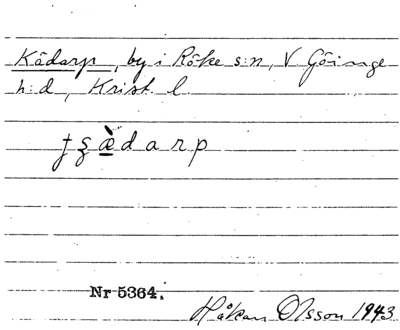 Kädarp, by i Röke s:n, V Göinge
h:d, Krist. l.
Nr 5364.
Håkan Olsson 1943